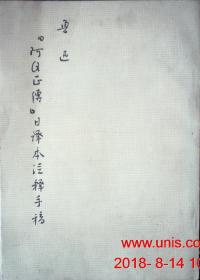 鲁迅
《阿Q正传》日译本注释手稿
www.unis.c
2018- 8-14 10